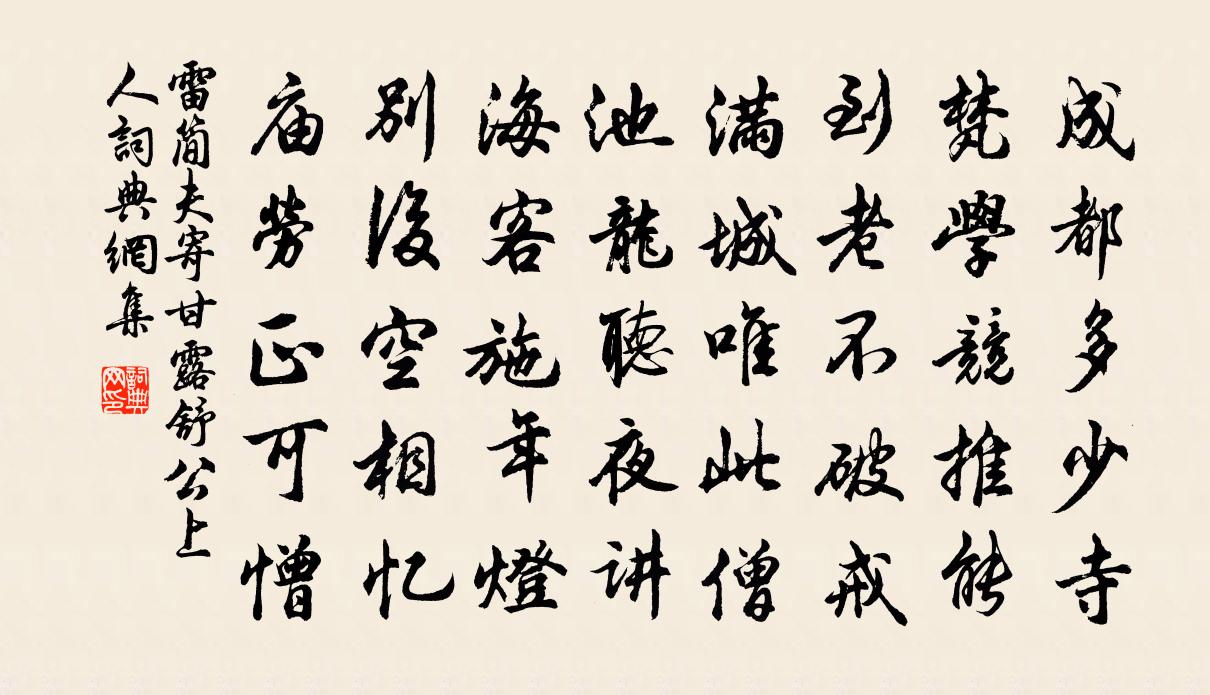 成都多少寺
梵學競推能
到老不破戒
滿城唯此僧
池龍聽夜讲
海客施年燈
別後空相忆
庙勞正可憎
雷简夫寄甘露舒公上
人詞典網集
詞典
网印